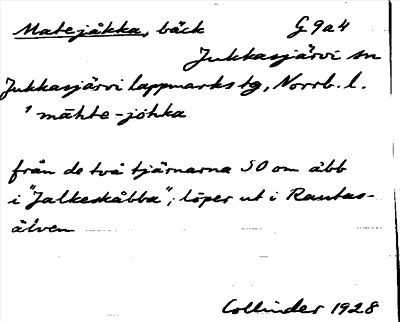 Matejåkka, bäck G9a4
Jukkasjärvi sn
Jukkasjärvi lappmarks tg, Norrb. l.
' mãhte-johka
från de två tjärnarna SO om åbb
i "Jalkeskåbba"; löper ut i Rautas-
älven
Collinder 1928